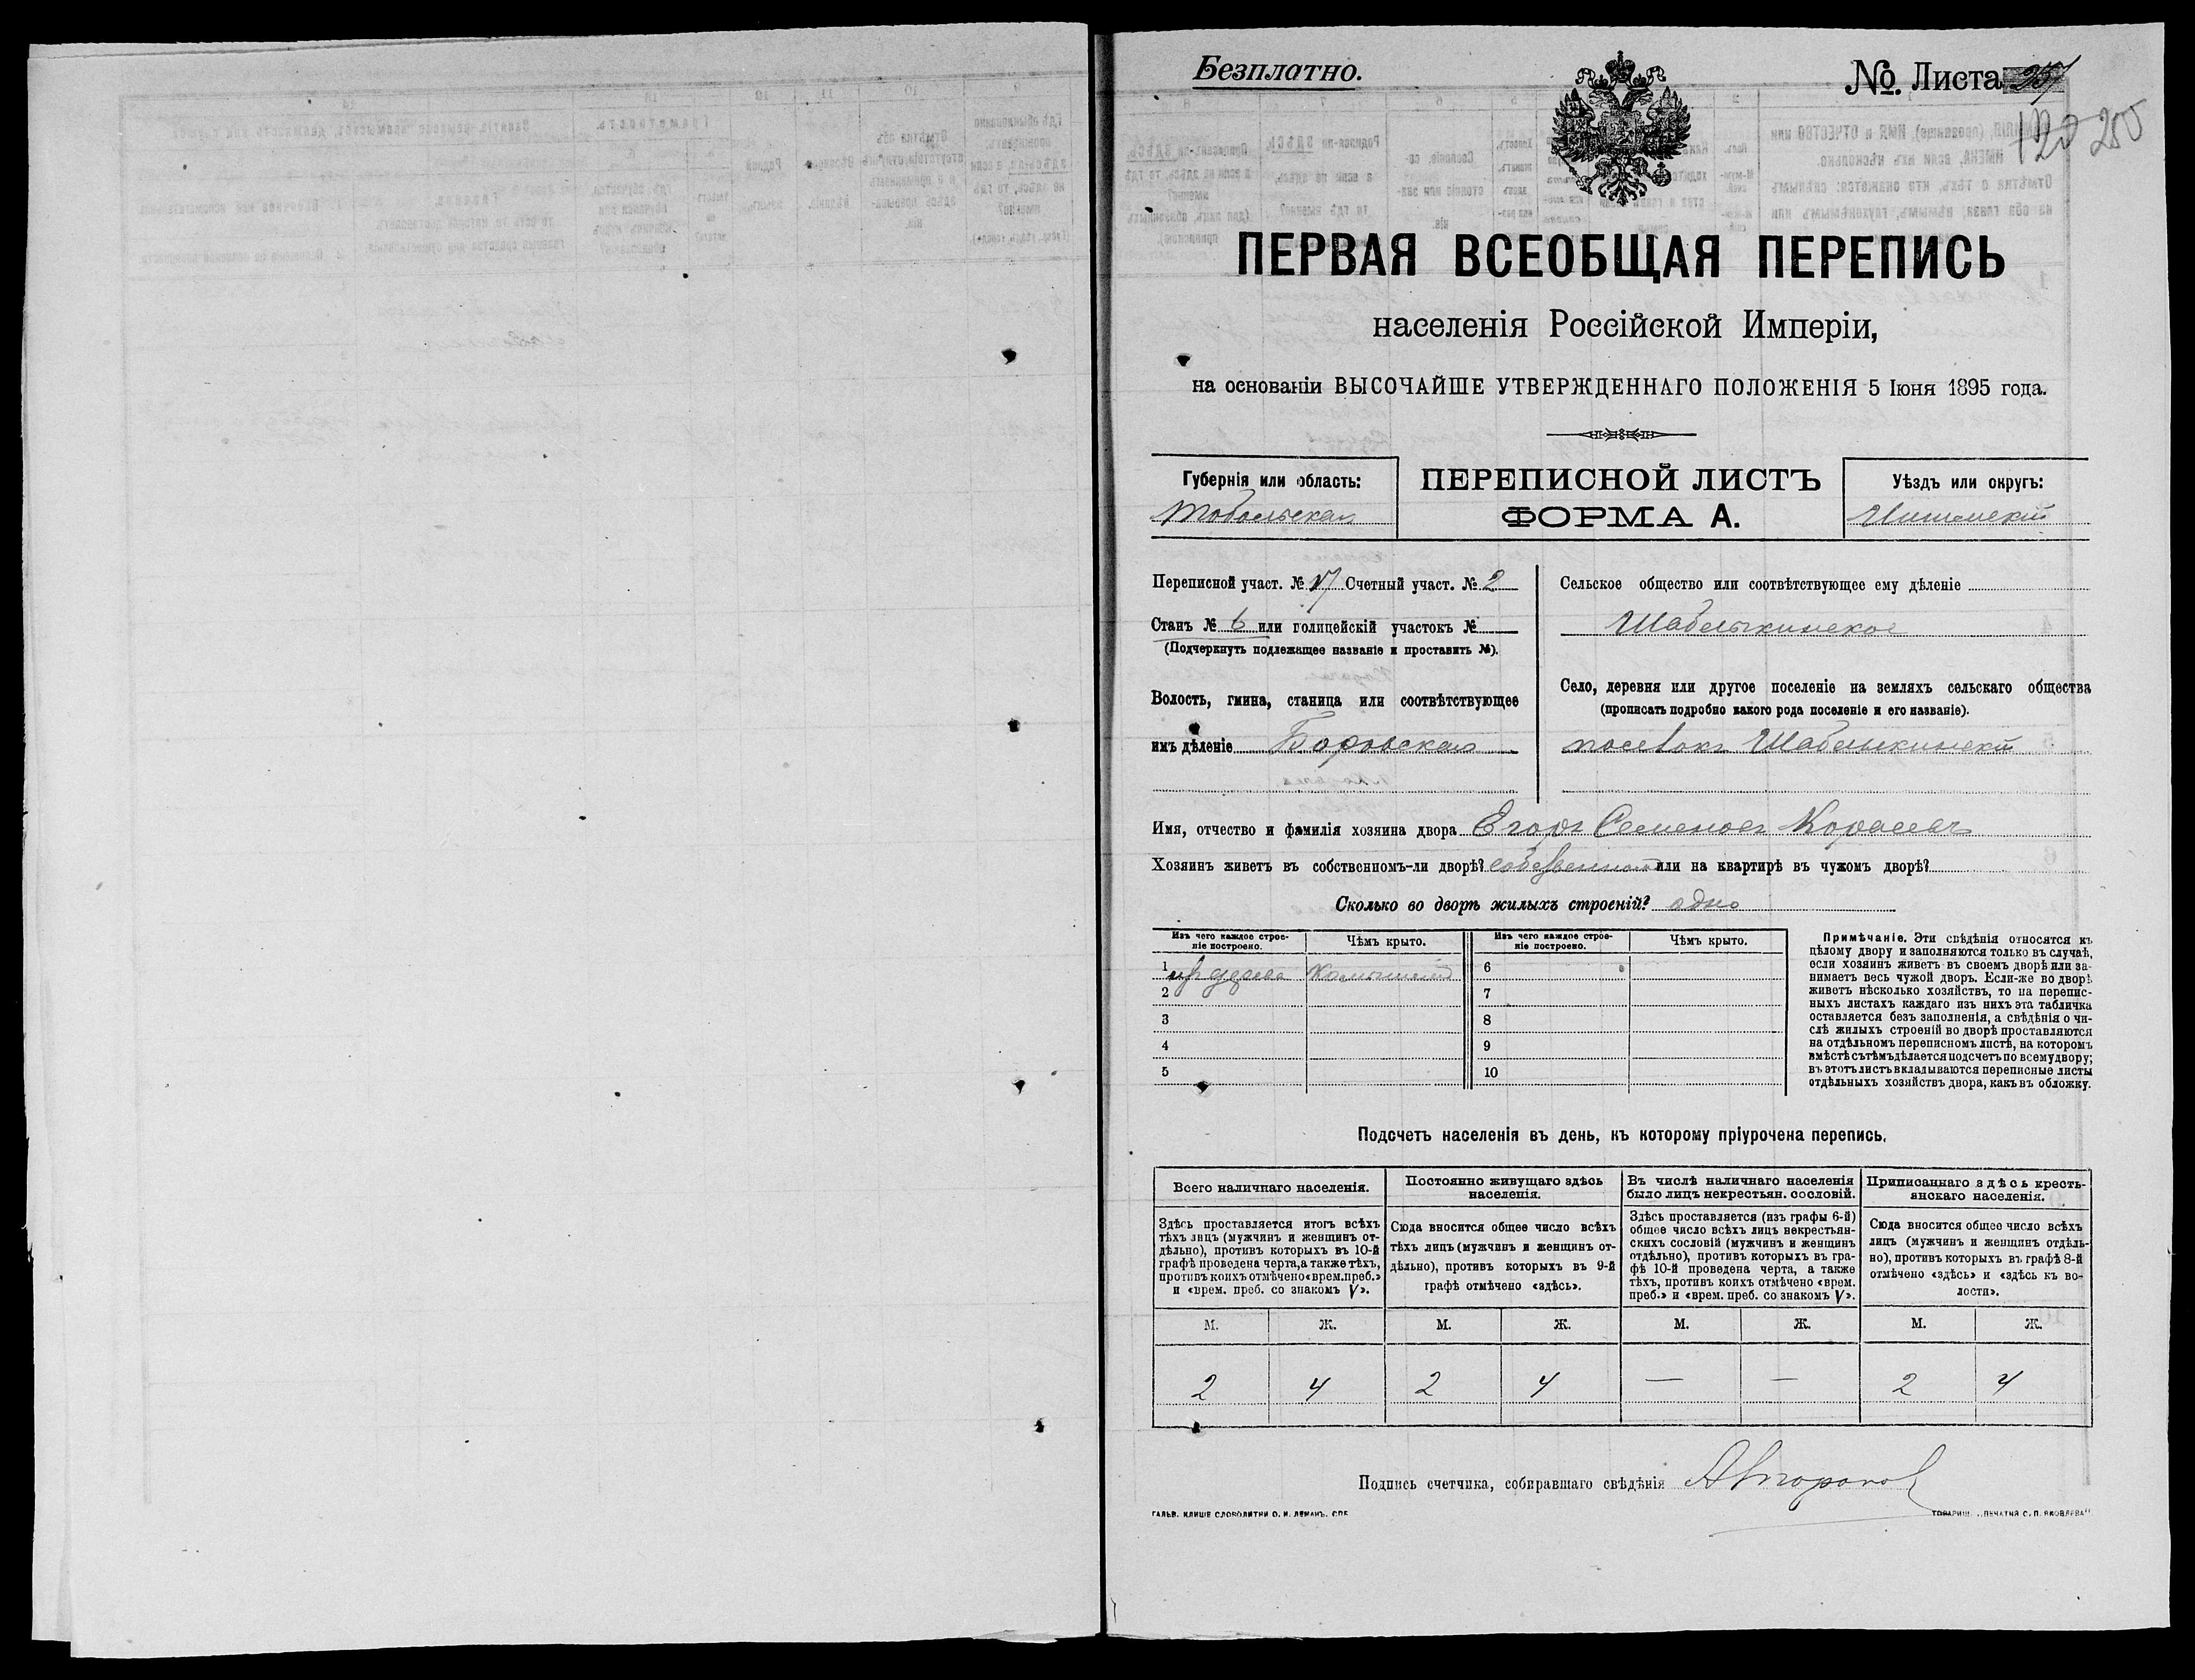 Безплатно.
№ Листа 257
120 250
ПЕРВАЯ ВСЕОБЩАЯ ПЕРЕПИСЬ
населенія Россійской Имперіи,
на основаніи ВЫСОЧАЙШЕ УТВЕРЖДЕННАГО ПОЛОЖЕНІЯ 5 Іюня 1895 года.
Губернія или область:
Тобольская
ПЕРЕПИСНОЙ ЛИСТЪ
ФОРМА А.
Уѣздъ или округъ:
Ишимскій
Переписной участ. № 17 Счетный участ. № 2
Станъ № 6 или полицейскій участокъ №
(Подчеркнуть подлежащее названіе и проставить №).
Волость, гмина, станица или соотвѣтствующее
имъ дѣленіе Боровская
Сельское общество или соотвѣтствующее ему дѣленіе
Шаблыкинское
Село, деревня или другое поселеніе на земляхъ сельскаго общества
(прописать подробно какого рода поселеніе и его названіе).
поселокъ Шаблыкинскій
Имя, отчество и фамилія хозяина двора Егоръ Семеновъ
Хозяинъ живетъ въ собственномъ-ли дворѣ? собственномъ или на квартирѣ въ чужомъ дворѣ?
Сколько во дворѣ жилыхъ строеній? одно
Изъ чего каждое строе-
ніе построено.
Чѣмъ крыто.
Изъ чего каждое строе-
ніе построено.
Чѣмъ крыто.
1 изъ дерева 6
2 7
3 8
4 9
5 10
Примѣчаніе. Эти свѣдѣнія относятся къ
цѣлому двору и заполняются только въ случаѣ,
если хозяинъ живетъ въ своемъ дворѣ или за-
нимаетъ весь чужой дворъ. Если-же во дворѣ
живетъ нѣсколько хозяйствъ, то на перепис-
ныхъ листахъ каждаго изъ нихъ эта табличка
оставляется безъ заполненія, а свѣдѣнія о чи-
слѣ жилыхъ строеній во дворѣ проставляются
на отдѣльномъ переписномъ листѣ, на которомъ
вмѣстѣ съ тѣмъ дѣлается подсчетъ по всему двору;
въ этотъ листъ вкладываются переписные листы
отдѣльныхъ хозяйствъ двора, какъ въ обложку.
Подсчетъ населенія въ день, къ которому пріурочена перепись.
Всего наличнаго населенія.
Здѣсь проставляется итогъ всѣхъ
тѣхъ лицъ (мужчинъ и женщинъ от-
дѣльно), противъ которыхъ въ 10-й
графѣ проведена черта, а также тѣхъ,
противъ коихъ отмѣчено «врем. преб.»
и «врем. преб. со знакомъ V».
Постоянно живущаго здѣсь
населенія.
Сюда вносится общее число всѣхъ
тѣхъ лицъ (мужчинъ и женщинъ от-
дѣльно), противъ которыхъ въ 9-й
графѣ отмѣчено «здѣсь».
Въ числѣ наличнаго населенія
было лицъ некрестьян. сословій.
Здѣсь проставляется (изъ графы 6-й)
общее число всѣхъ лицъ некрестьян-
скихъ сословій (мужчинъ и женщинъ
отдѣльно), противъ которыхъ въ гра-
фѣ 10-й проведена черта, а также
тѣхъ, противъ коихъ отмѣчено «врем.
преб.» и «врем. преб. со знакомъ V».
Приписаннаго здѣсь кресть-
янскаго населенія.
Сюда вносится общее число всѣхъ
лицъ (мужчинъ и женщинъ отдѣль-
но), противъ которыхъ въ графѣ 8-й
отмѣчено «здѣсь» и «здѣсь къ во-
лости».
М. Ж. М. Ж. М. Ж. М. Ж.
2 4 2 4 — — 2 4
Подпись счетчика, собиравшаго свѣдѣнія
ГАЛЬВ. КЛИШЕ СЛОВОЛИТНИ О. И. ЛЕМАНЪ. СПБ.
ТОВАРИЩ. „ПЕЧАТНЯ С. П. ЯКОВЛЕВА"